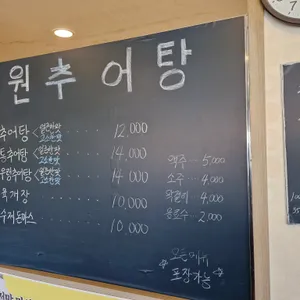 원추어탕
추어탕 12,000
통추어탕 14,000
우렁추어탕 14,000
육개장 10,000
수제돈까스 10,000
맥주 5,000
소주 4,000
막걸리 4,000
음료수 2,000
모든메뉴
포장가능